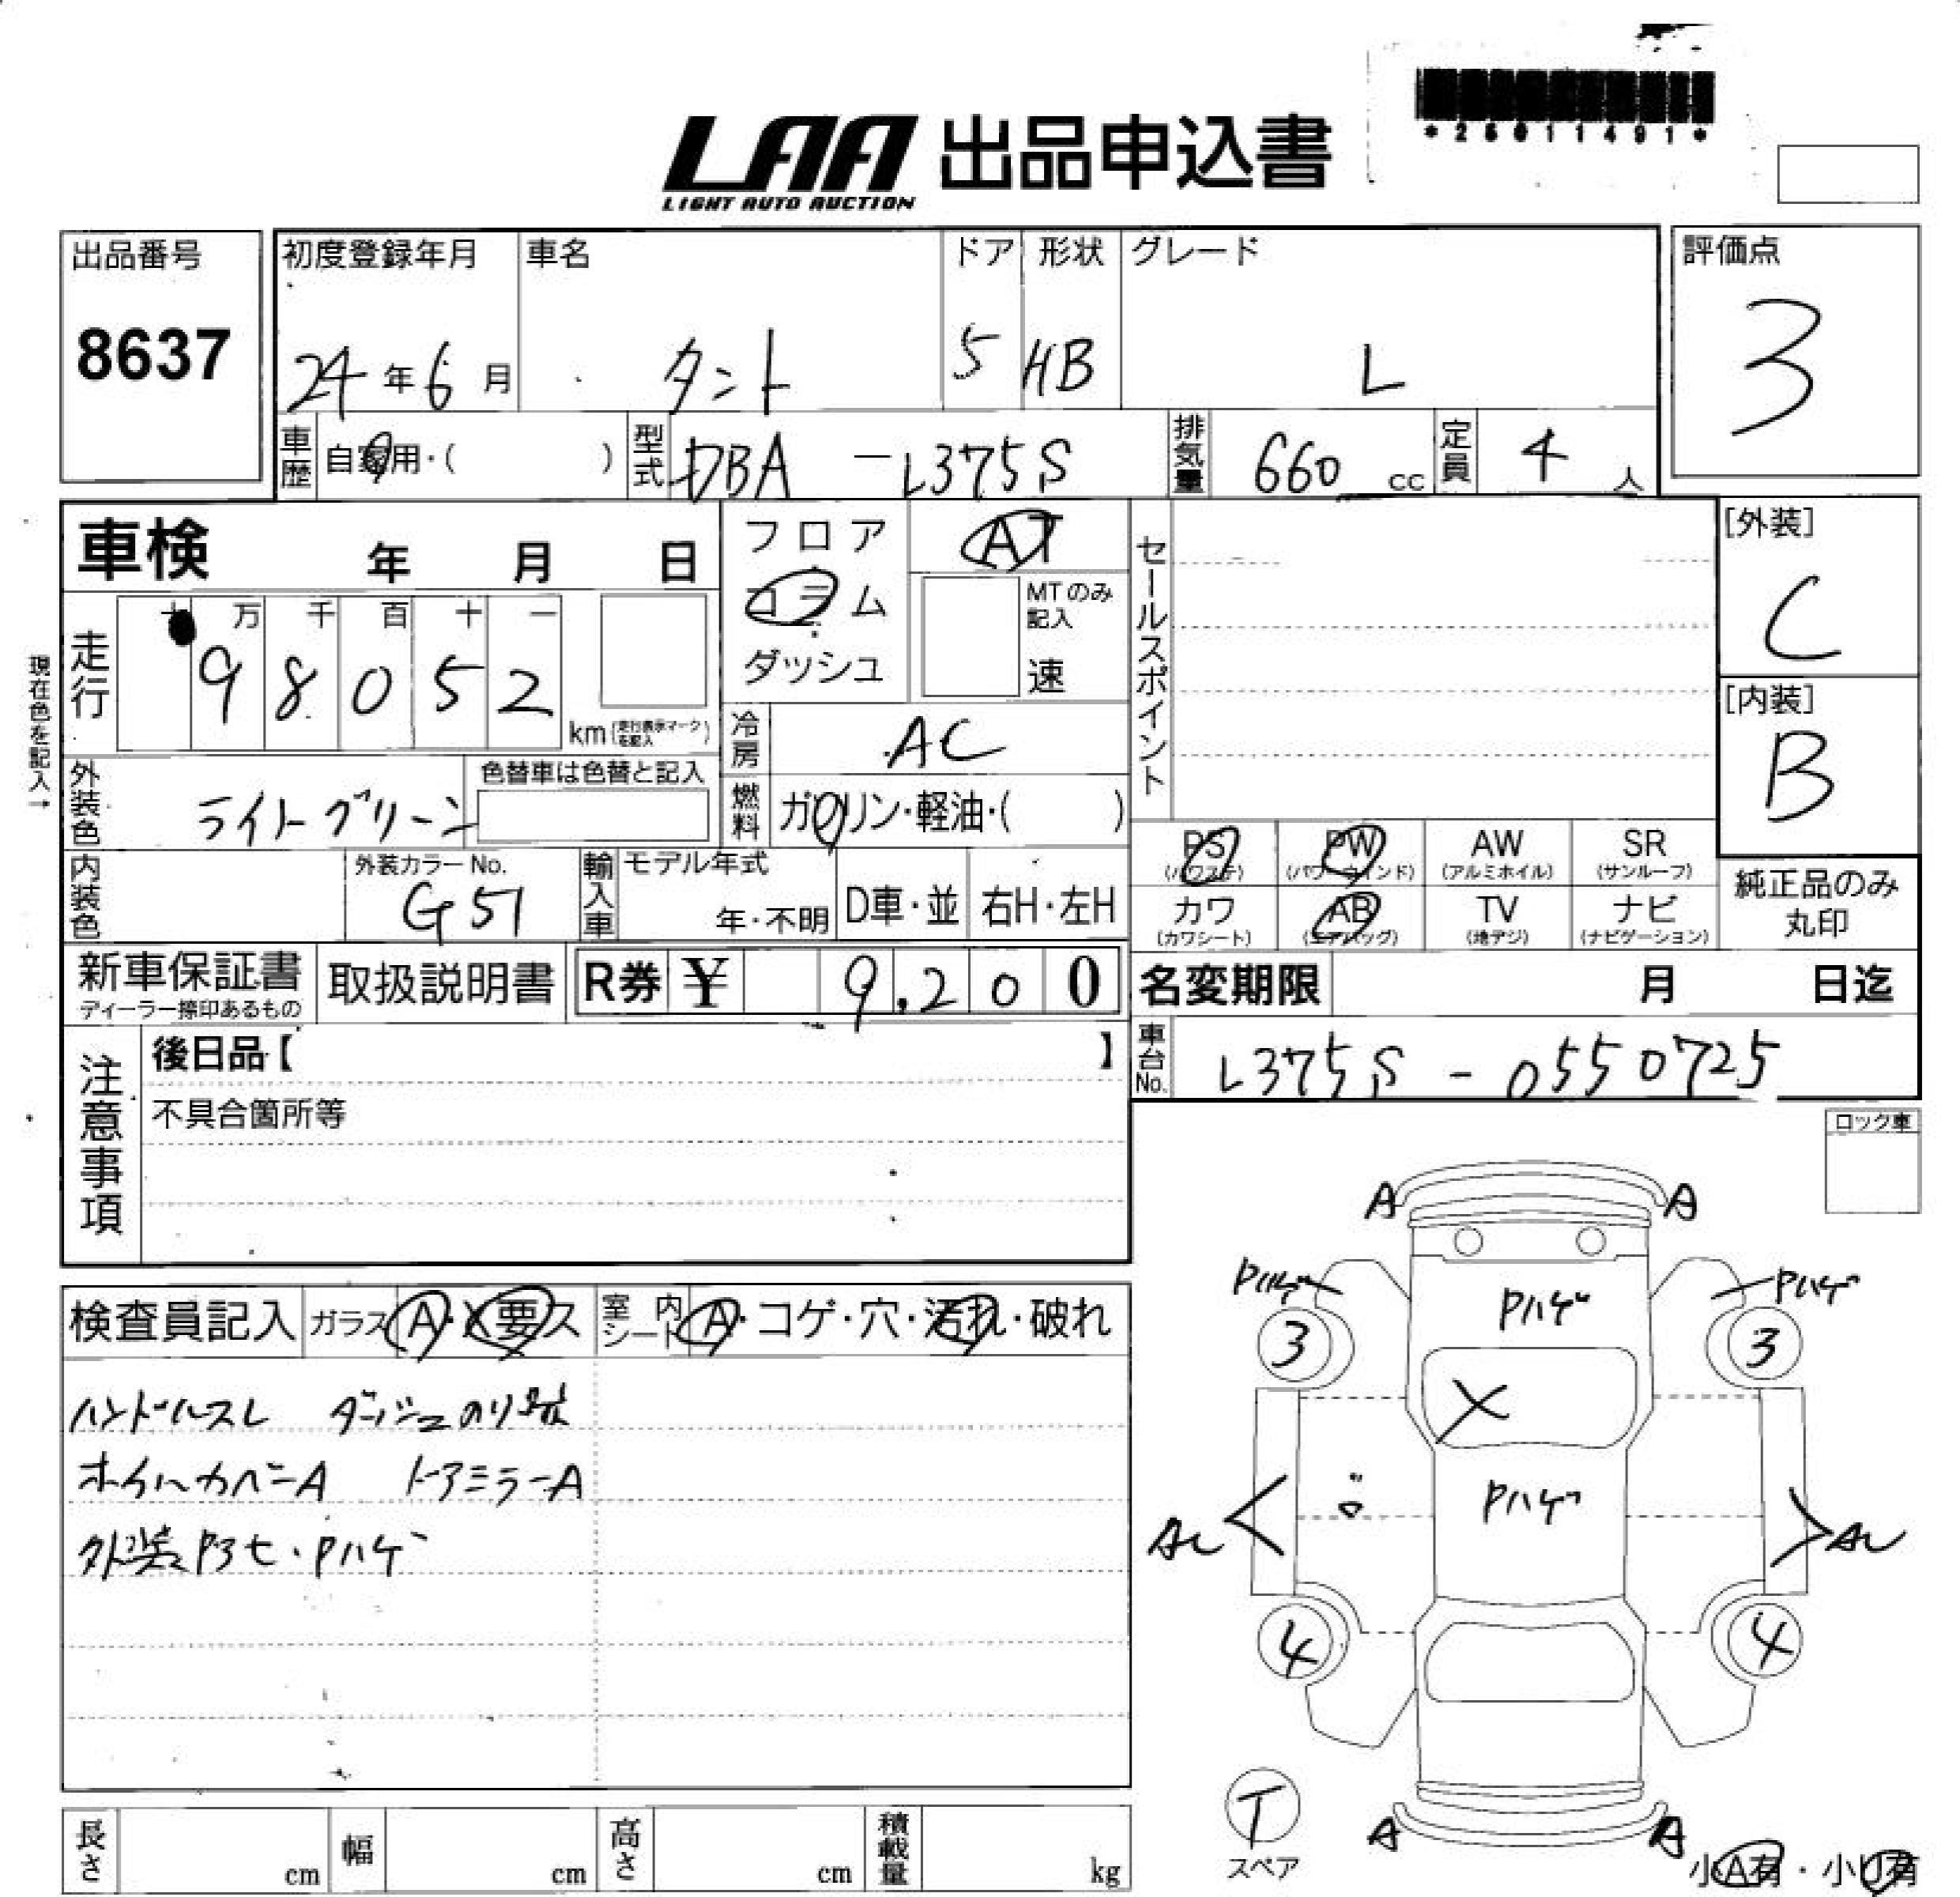 *26011491*
LAA 出品申込書
LIGHT AUTO AUCTION
出品番号 8637
初度登録年月 24年6月
車名 タント
ドア 5
形状 HB
グレード L
評価点 3
車歴 自家用・( )
型式 DBA-L375S
排気量 660 cc
定員 4 人
車検 年 月 日
フロア
コラム
ダッシュ
AT
MTのみ記入
速
セールスポイント
[外装] C
[内装] B
現在色を記入→
走行 十 万 千 百 十 一
98052 km(走行表示マークを記入)
冷房 AC
外装色 ライトグリーン
色替車は色替と記入
燃料 ガソリン・軽油・( )
内装色
外装カラーNo. G51
輸入車 モデル年式 年・不明 D車・並 右H・左H
PS (パワステ) PW (パワーウインド) AW (アルミホイル) SR (サンルーフ)
カワ (カワシート) AB (エアバッグ) TV (地デジ) ナビ (ナビゲーション)
純正品のみ丸印
新車保証書 ディーラー捺印あるもの
取扱説明書
R券 ¥ 9,200
名変期限 月 日迄
車台No. L375S-0550725
注意事項
後日品【 】
不具合箇所等
ロック車
検査員記入 ガラス A・X要ス 室内シート A・コゲ・穴・汚れ・破れ
ハンドルスレ ダッシュのり跡
ホイルカバーA ドアミラーA
外装色アセ・Pハゲ
A A
Pハゲ Pハゲ Pハゲ
3 3
X
Pハゲ
AU AU
4 4
T
スペア
A A
小A有・小U有
長さ cm 幅 cm 高さ cm 積載量 kg